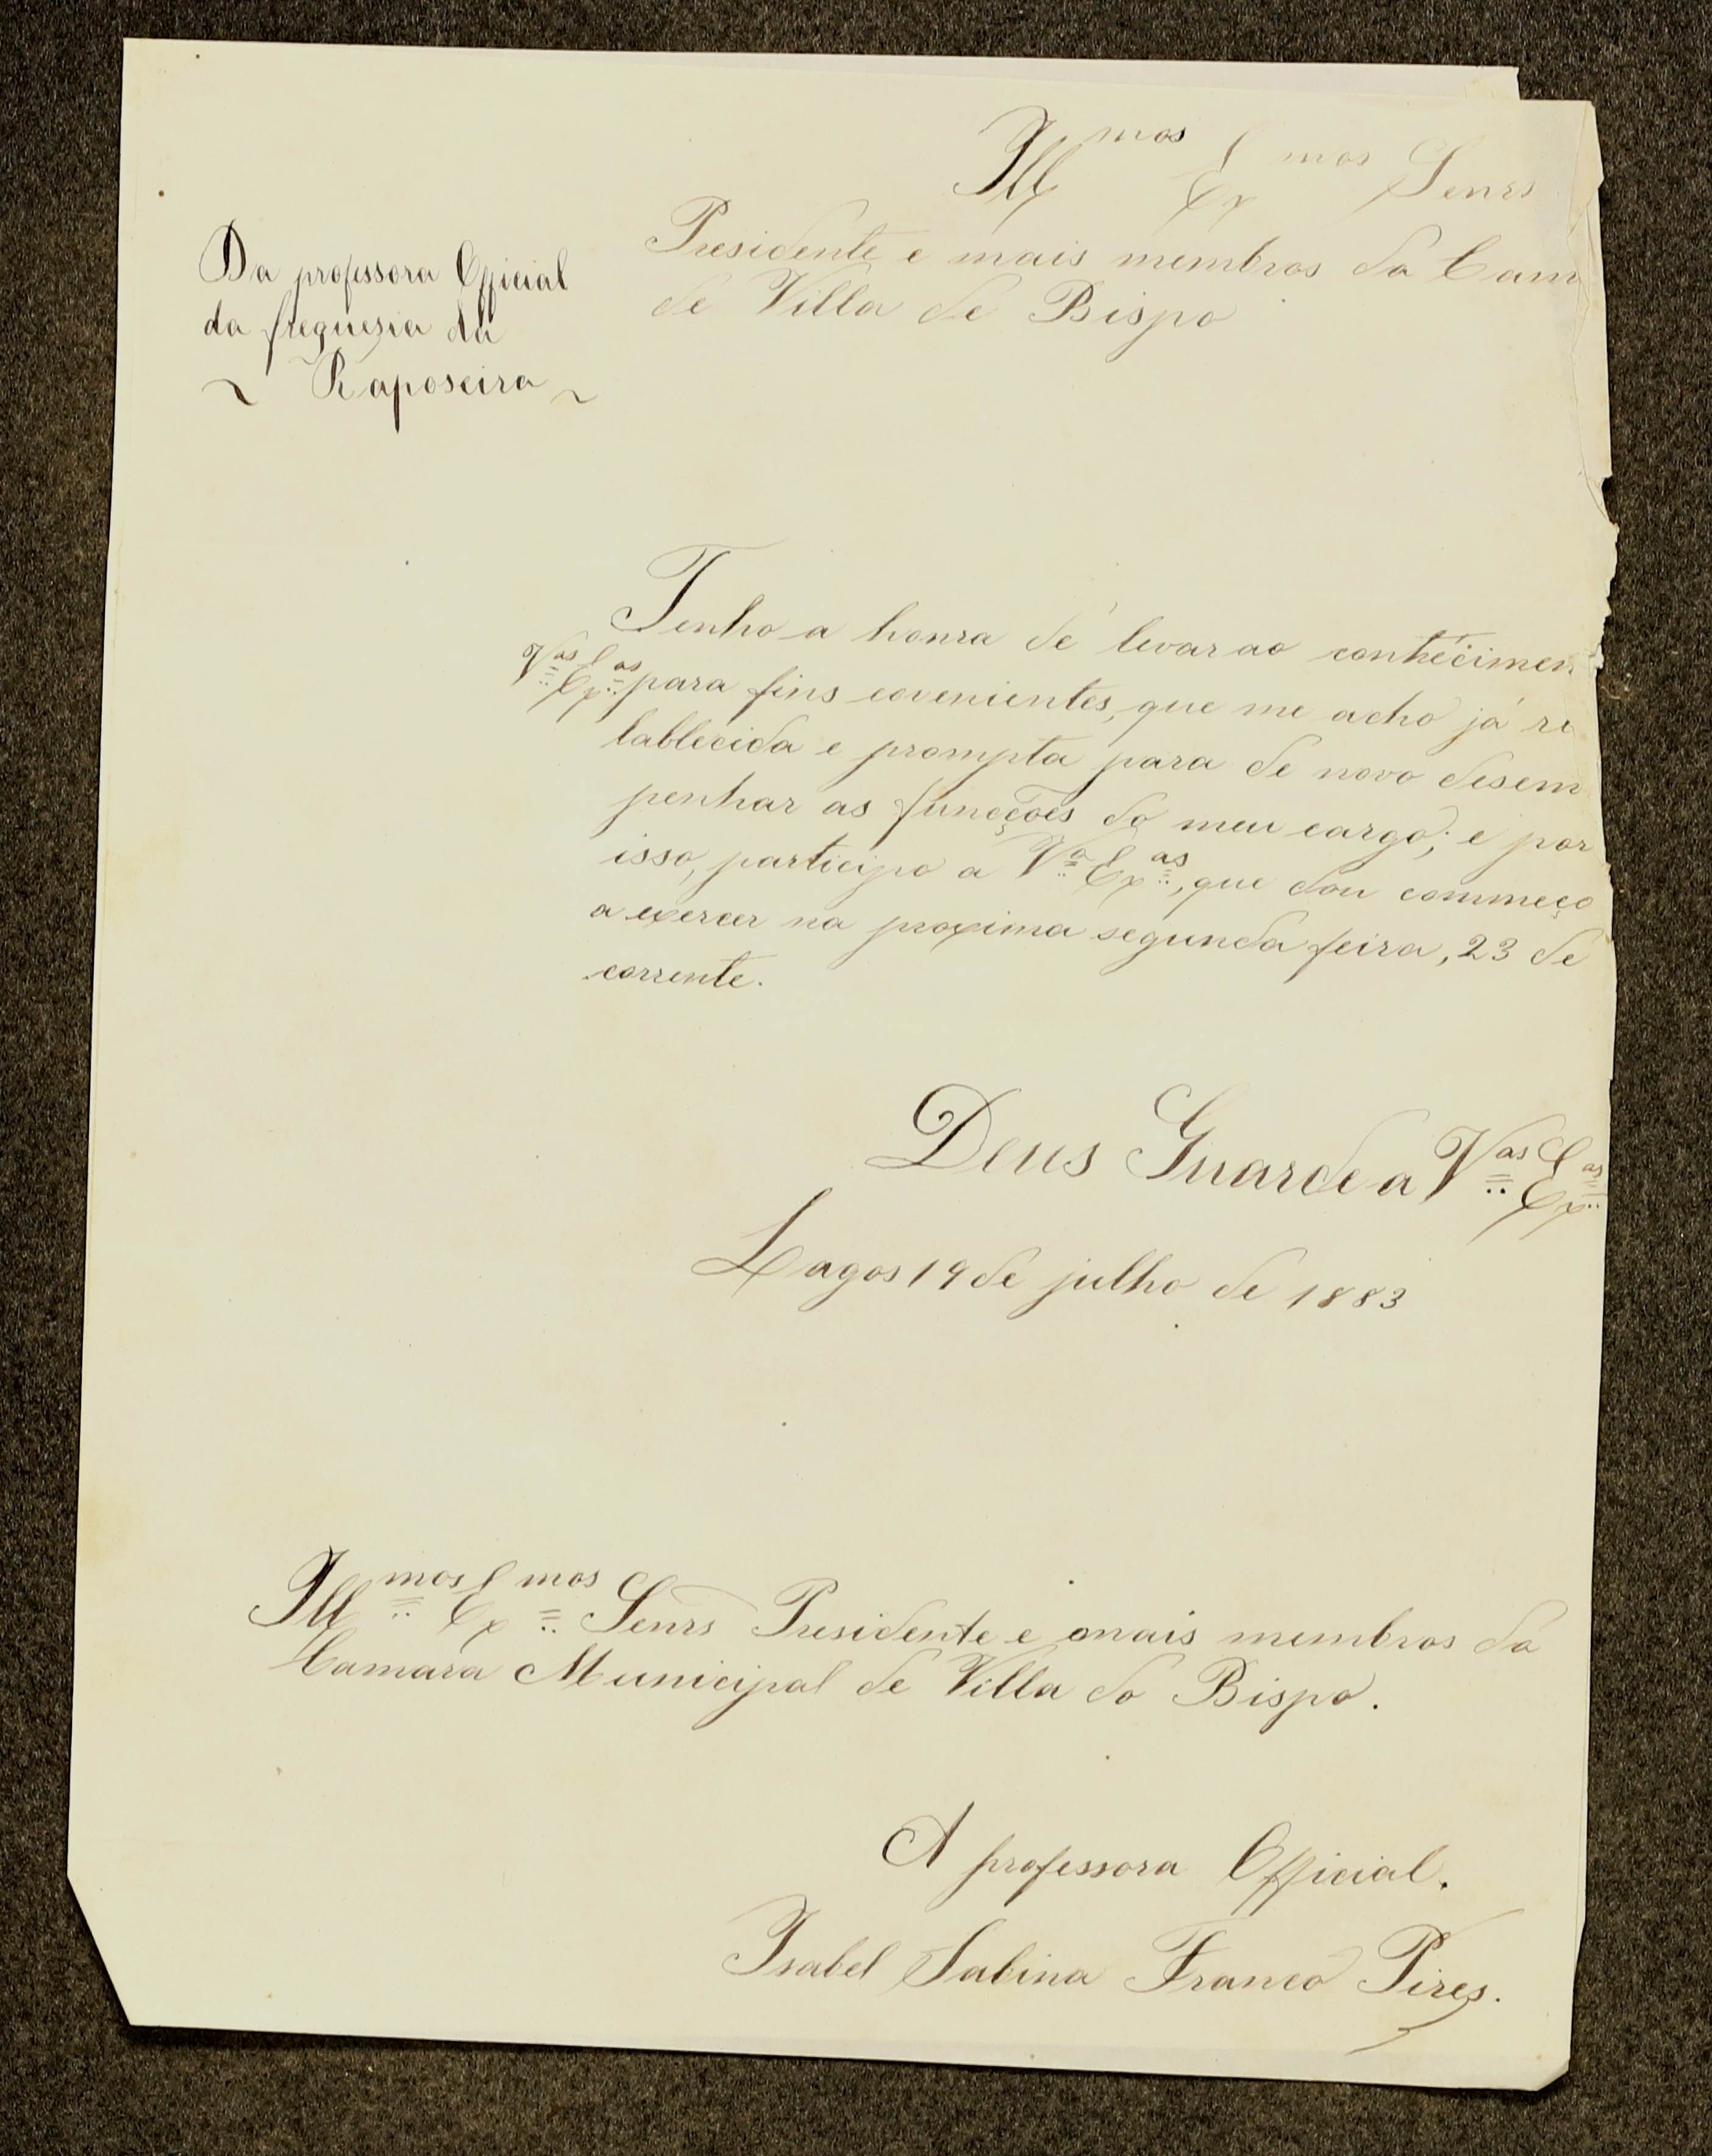 Illmos Exmos Senrs
Presidente e mais membros da Cam
de Villa de Bispo
Da professora Official
da freguesia da
~ Raposeira ~
Tenho a honra de levar ao conhecimen
Vas Exas para fins covenientes, que me acho já re
tablecida e prompta para de novo desem
penhar as funcções do meu cargo; e por
isso, participo a Va Exas, que dou começo
a exercer na proxima segunda feira, 23 de
corrente.
Deus Guarde a Vas Exas
Lagos 19 de julho de 1883
Illmos Exmos Senrs Presidente e mais membros da
Camara Municipal de Villa do Bispo.
A professora Official.
Isabel Sabina Franco Pires.